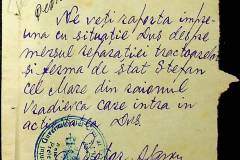 Ne veți raporta împre-
una cu situație Dvs despre
mersul reparației tractoarelor
și ferma de Stat Ștefan
cel Mare din raionul
Vradievca care intra in
activitatea Dvs